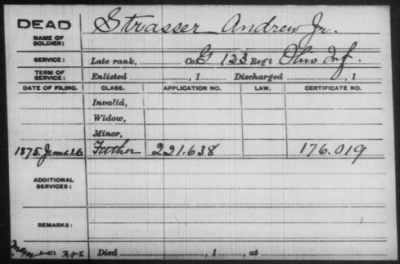 DEAD
NAME OF SOLDIER: Strasser Andrew Jr.
SERVICE: Late rank, Co. G 123 Reg't Ohio Inf.
TERM OF SERVICE: Enlisted , 1 Discharged , 1
DATE OF FILING. CLASS. APPLICATION NO. LAW. CERTIFICATE NO.
Invalid,
Widow,
Minor,
1875 June 26 Father 221.638 176.019
ADDITIONAL SERVICES:
REMARKS:
Died , 1 , at